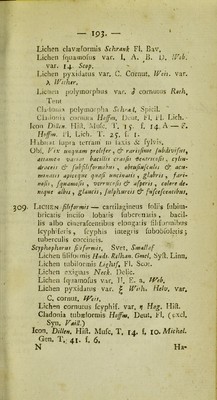 — 193. —
Lichen clavæformis Schrank Fl. Bav.
Lichen squamosus var. I, A. B. D. Web.
var. 14. Scop.
Lichen pyxidatus var. C. Cornut, Weis. var.
λ Wither.
Lichen polymorphus var. δ cornutus Roth,
Tent
Cladonia polymorpha Schrad, Spicil.
Cladonia cornuta Hoffm, Deut. Fl. Fl. Lich.
Icon Dillen. Hist. Musc. T. 15. f. 14. A — E.
Hoffm. Fl. Lich. T. 25. f. 1.
Habitat supra terram in saxis & sylvis.
Obs. Vix unquam prolifer, & rarissime subdivisus,
attamen variat bacillis crassis ventricosis, cylin-
draceis & subfiliformibus, obtusiusculis & acu-
minatis apiceque quasi uncinatis, glabris, fari-
nosis, squamosis, verrucosis & asperis, colore de-
nique albis, glaucis, sulphureis & fuscescentibus.
309. Lichen filiformis — cartilagineus foliis subim-
bricatis incisis lobatis tuberculatis, bacil-
lis albo cinerascentibus elongatis filiformibus
scyphiferis, scyphis integris subobsoletis;
tuberculis coccineis.
Scyphophorus filiformis, Svet. Smaltof
Lichen filiformis Huds. Relhan. Gmel. Syst. Linn.
Lichen tubiformis Lightf. Fl. Scot.
Lichen exiguus Neck. Delic.
Lichen squamosus var, II. E. a, Web.
Lichen pyxidatus var. ξ With. Helv. var.
C. cornut, Weis.
Lichen cornutus scyphif. var. η Hag. Hist.
Cladonia tubæformis Hoffm. Deut. Fl. (excl.
Syn. Vaill.)
Icon, Dillen. Hist. Musc, T. 14. f. 10. Michel.
Gen. T. 41. f. 6.
N Ha-